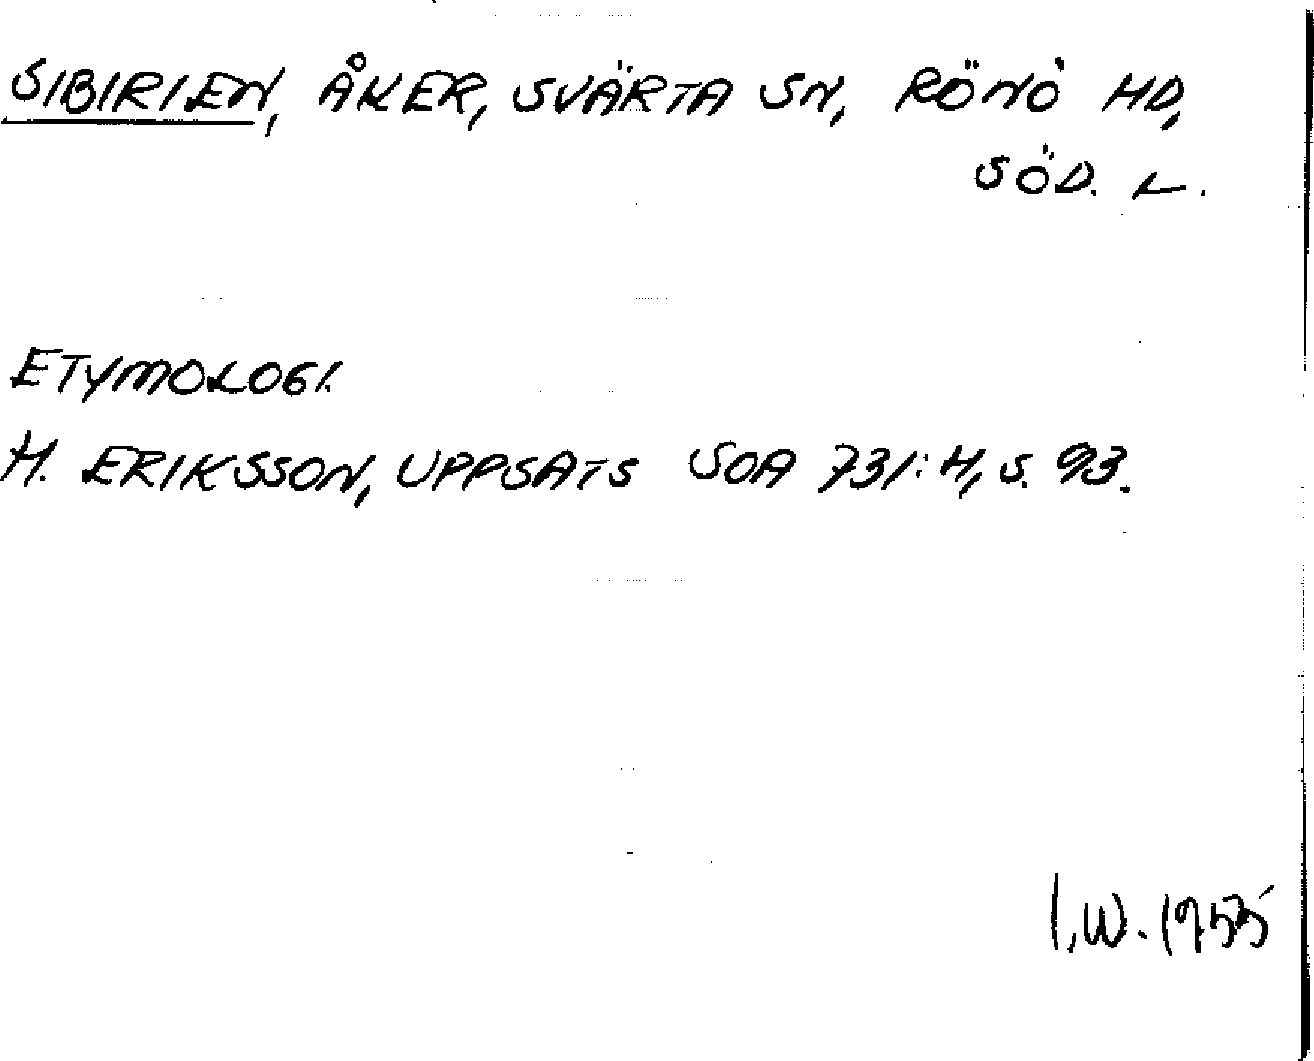 SIBIRIEN, ÅKER, SVÄRTA SN, RÖNÖ HD,
SÖD. L.
ETYMOLOGI.
H. ERIKSSON, UPPSATS SOA 731:H, S. 93.
I.W. 1955